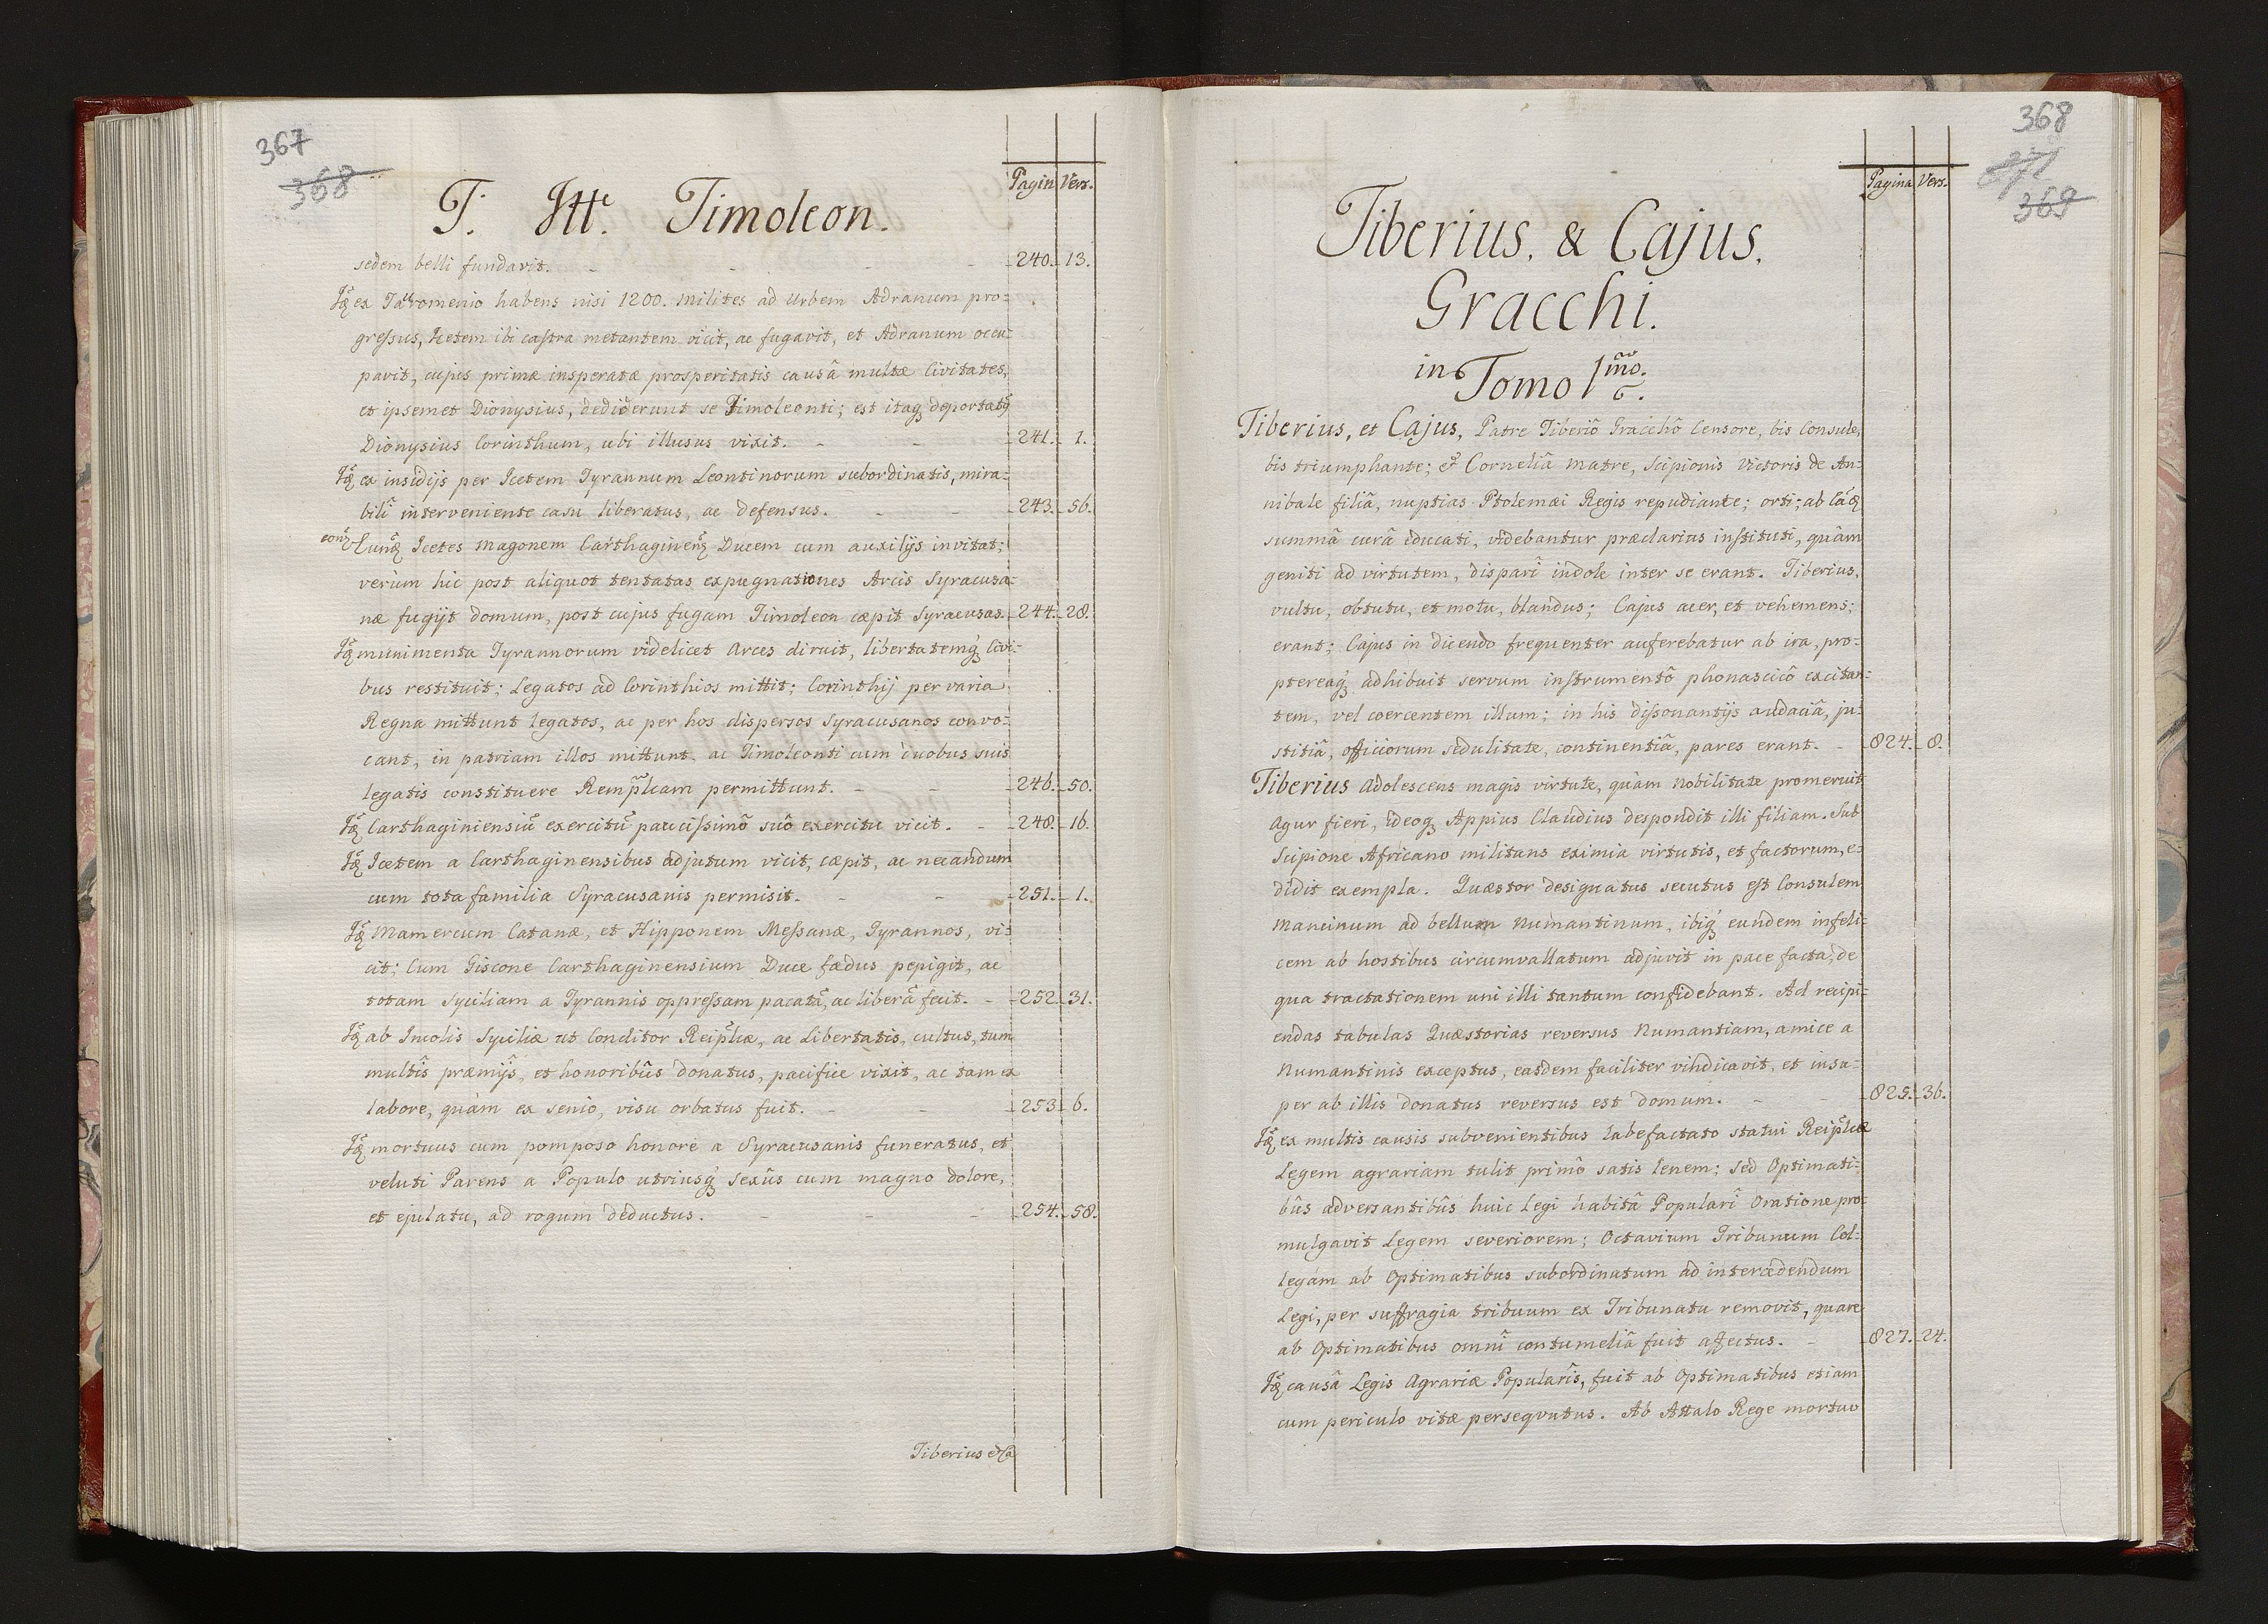 367
368
Pagin Vers.
T. Itt. Timoleon.
sedem belli fundavit. - - - - 240. 13.
Itq̃ ex Tauromenio habens nisi 1200. milites ad Urbem Adranum pro:
greſsus, Icetem ibi caſtra metantem vicit, ac fugavit, et Adranum occu:
pavit, cujus primæ insperatæ prosperitatis causâ multæ Civitates,
et ipsemet Dionysius, dediderunt se Timoleonti; est itaq; deportatq̃
Dionysius Corinthum, ubi illusus vixit. - - 241. 1.
Itq̃ ex insidijs per Icetem Tyrannum Leontinorum subordinatis, mira:
bili interveniente casu liberatus, ac defensus. - - 243. 56.
Icetes Magonem Carthaginenq̃ Ducem cum auxilijs invitat;
verùm hic post aliquot tentatas expugnationes Arcis Syracusa:
næ fugijt domum, post cujus fugam Timoleon cæpit Syracusas. 244. 28.
Itq̃ munimenta Tyrannorum videlicet Arces diruit, libertatemq; Civi:
bus restituit; Legatos ad Corinthios mittit; Corinthij per varia
Regna mittunt legatos, ac per hos dispersos Syracusanos convo:
cant, in patriam illos mittunt, ac Timoleonti cum duobus suis
legatis constituere Rempl̃cam permittunt. - - 246. 50.
Itq̃ Carthaginiensiũ exercitũ pauciſsimô suô exercitu vicit. - 248. 16.
Itq̃ Icetem a Carthaginensibus adjutum vicit, cæpit, ac necandum
cum tota familia Syracusanis permisit. - - 251. 1.
Itq̃ Mamercum Catanæ, et Hipponem Meſsanæ, Tyrannos, vi:
cit; Cum Giscone Carthaginensium Duce fædus pepigit, ac
totam Syciliam a Tyrannis oppreſsam pacatã, ac liberã fecit. - 252. 31.
Itq̃ ab Incolis Syciliæ ut Conditor Reipl̃cæ, ac Libertatis, cultus, tum
multîs præmijs, et honoribûs donatus, pacifice vixit, ac tam ex
labore, quàm ex senio, visu orbatus fuit. - - 253. 6.
Itq̃ mortuus cum pomposo honore a Syracusanis funeratus, et
veluti Parens a Populo utriusq; sexûs cum magno dolore,
et ejulatu, ad rogum deductus. - - - 254. 58.
Tiberius et Ca
368
371
369
Pagina Vers.
Tiberius, & Cajus.
Gracchi.
in Tomo 1mo.
Tiberius, et Cajus, Patre Tiberiô Gracchô Censore, bis Consule,
bis triumphante; et Corneliâ Matre, Scipionis Victoris de An:
nibale filiâ, nuptias Ptolemæi Regis repudiante; orti; ab eâdq̃
summâ curâ educati, videbantur præclarius inſtituti, quàm
geniti ad virtutem, dispari indole inter se erant. Tiberius,
vultu, obtutu, et motu, blandus; Cajus acer, et vehemens;
erant; Cajus in dicendo frequenter auferebatur ab ira, pro:
ptereaq; adhibuit servum inſtrumentô phonascicô excitan:
tem, vel coercentem illum; in his diſsonantijs audaciâ, ju:
stitiâ, officiorum sedulitate, continentiâ, pares erant. - 824. 8.
Tiberius adolescens magis virtute, quàm nobilitate promeruit
Agur fieri, ideoq; Appius Claudius despondit illi filiam. Sub
Scipione Africano militans eximia virtutis, et factorum, e:
didit exempla. Quæstor designatus secutus eſt Consulem
Mancinum ad bellum Numantinum, ibiq; eundem infeli:
cem ab hostibus circumvallatum adjuvit in pace facta; de
qua tractationem uni illi tantum confidebant. Ad recipi:
endas tabulas Quæstorias reversus Numantiam, amice a
Numantinis exceptus, easdem faciliter vindicavit, et insu:
per ab illis donatus reversus est domum. - - 825. 36.
Itq̃ ex multis causis subvenientibus labefactato statui Reipl̃cæ
Legem agrariam tulit primô satis lenem; sed Optimati:
bûs adversantibûs huic Legi habitâ Populari Oratione pro:
mulgavit Legem severiorem; Octavium Tribunum Col:
legam ab Optimatibus subordinatum ad intercedendum
Legi, per suffragia tribuum ex Tribunatu removit, quare
ab Optimatibus omni contumeliâ fuit affectus. - 827. 24.
Itq̃ causâ Legis Agrariæ Popularis, fuit ab Optimatibus etiam
cum periculo vitæ perseqvutus. Ab Attalo Rege mortuo